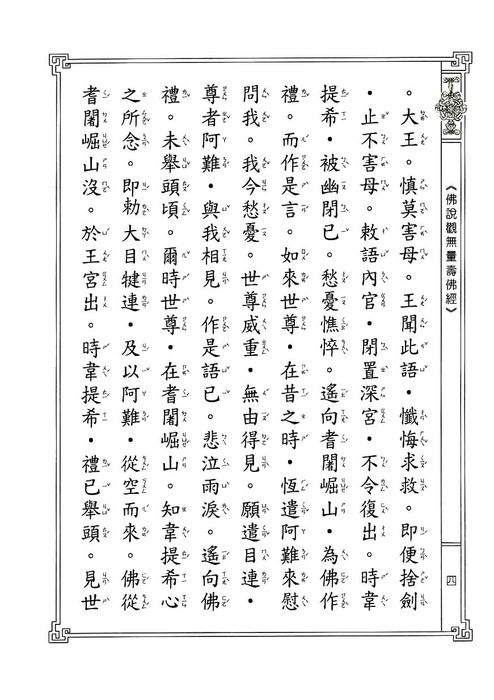 《佛說觀無量壽佛經》
四
。大王。慎莫害母。王聞此語・懺悔求救。即便捨劍
・止不害母。敕語內官・閉置深宮・不令復出。時韋
提希・被幽閉已。愁憂憔悴。遙向耆闍崛山・為佛作
禮。而作是言。如來世尊・在昔之時・恆遣阿難來慰
問我。我今愁憂。世尊威重・無由得見。願遣目連・
尊者阿難・與我相見。作是語已。悲泣雨淚。遙向佛
禮。未舉頭頃。爾時世尊・在耆闍崛山。知韋提希心
之所念。即勅大目犍連・及以阿難・從空而來。佛從
耆闍崛山沒。於王宮出。時韋提希・禮已舉頭。見世